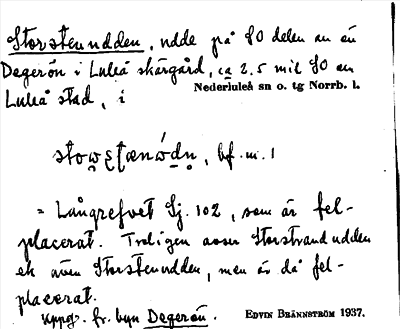 Storstenudden, udde på SO delen av ön
Degerön i Luleå skärgård, ca 2.5 mil SO om
Nederluleå sn o. tg Norrb. l.
Luleå stad, i
bf. m. 1
= Långrefvet Sj. 102, som är fel-
placerat. Troligen avser Storstrandudden
ek även Storstenudden, men är då fel-
placerat.
Uppg. fr. byn Degerön.
EDVIN BRÄNNSTRÖM 1937.